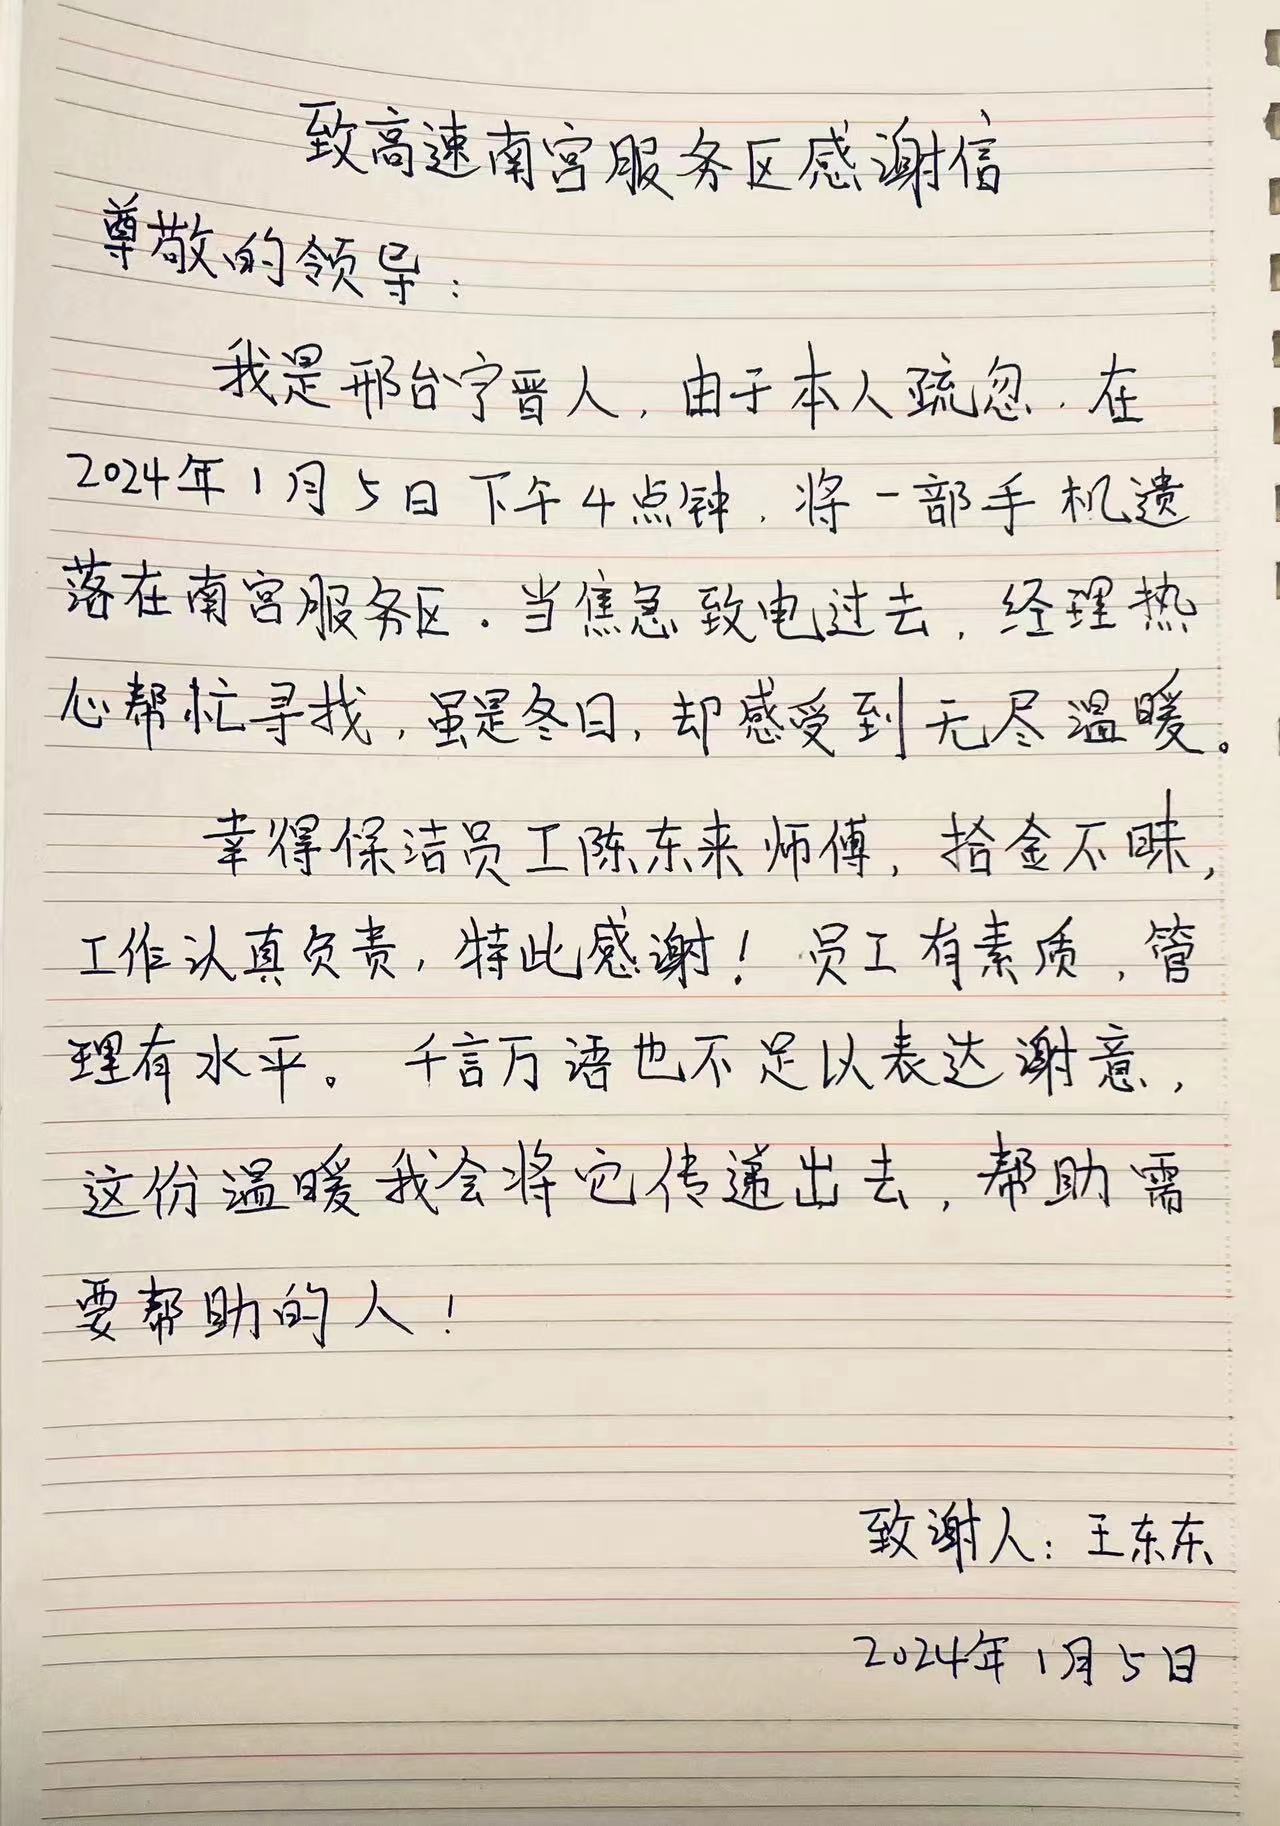 致高速南宫服务区感谢信
尊敬的领导：
我是邢台宁晋人，由于本人疏忽，在
2024年1月5日下午4点钟，将一部手机遗
落在南宫服务区。当焦急致电过去，经理热
心帮忙寻找，虽是冬日，却感受到无尽温暖。
幸得保洁员工陈东来师傅，拾金不昧，
工作认真负责，特此感谢！员工有素质，管
理有水平。千言万语也不足以表达谢意，
这份温暖我会将它传递出去，帮助需
要帮助的人！
致谢人：王东东
2024年1月5日